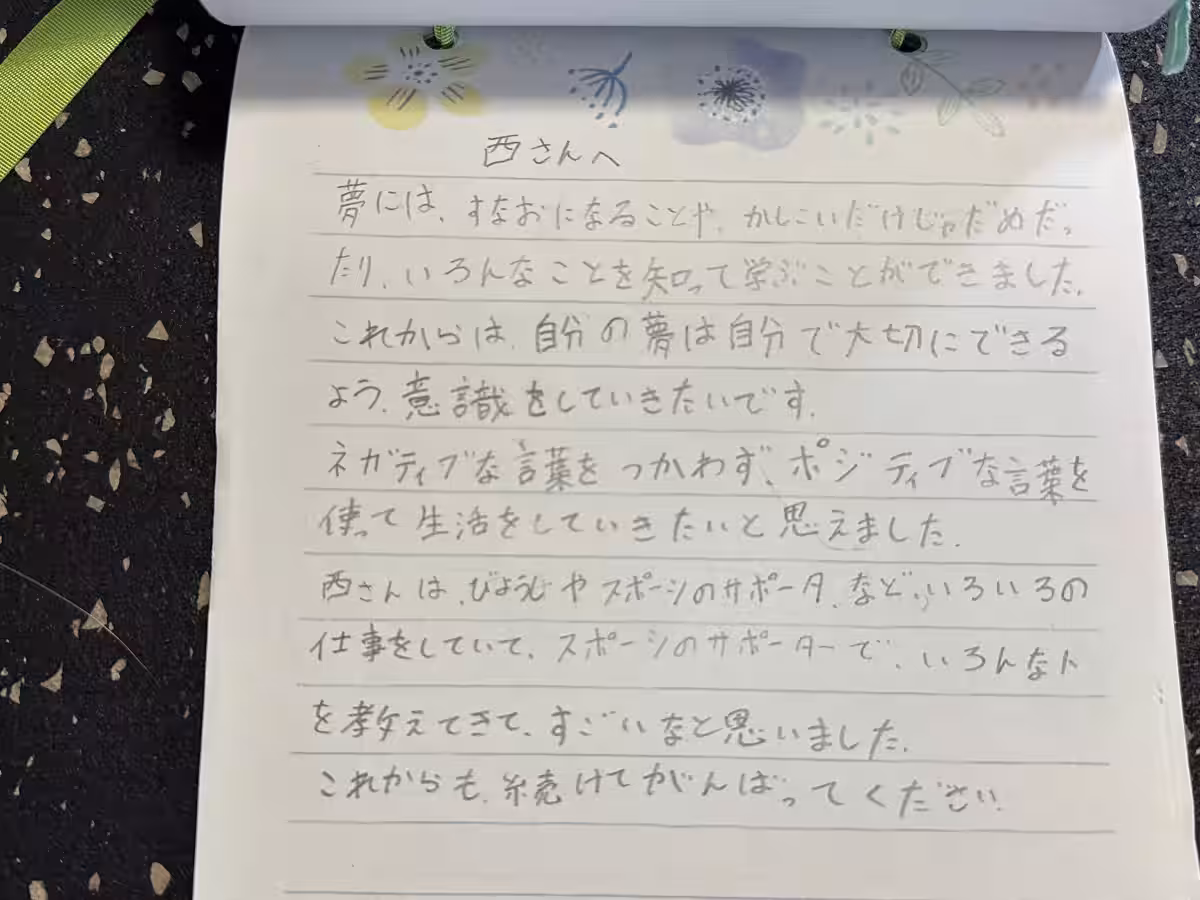 西さんへ
夢には、すなおになることや、かしこいだけじゃだめだっ
たり、いろんなことを知って学ぶことができました。
これからは、自分の夢は自分で大切にできる
よう、意識をしていきたいです。
ネガティブな言葉をつかわず、ポジティブな言葉を
使って生活をしていきたいと思えました。
西さんは、びようしやスポーツのサポータ、など、いろいろの
仕事をしていて、スポーツのサポーターで、いろんな人
を教えてきて、すごいなと思いました。
これからも、続けてがんばってください。